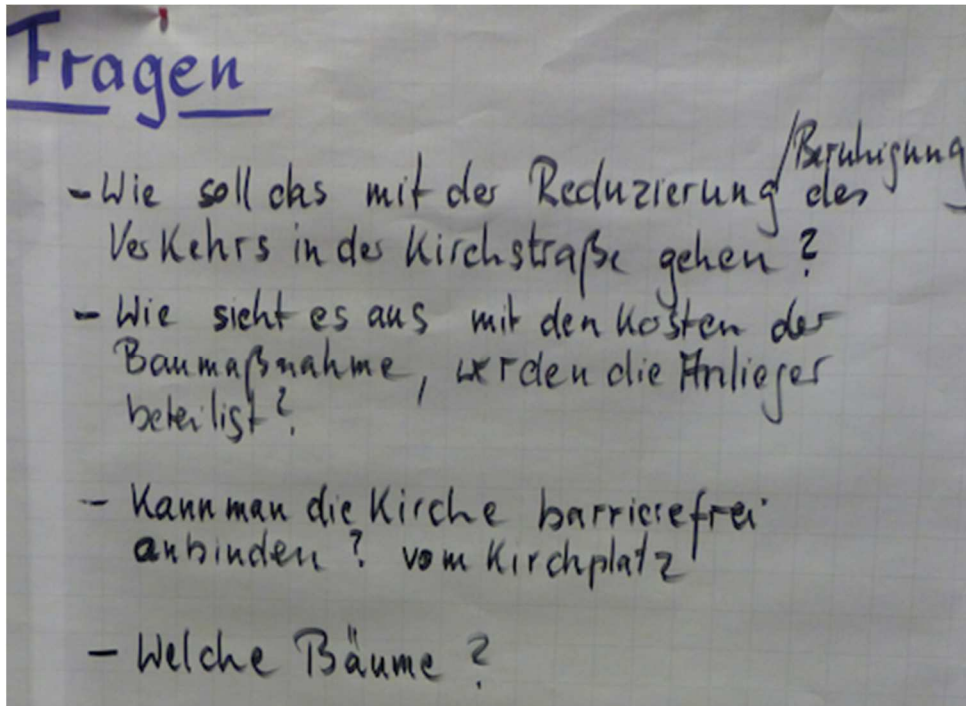 Fragen
/Beruhigung
- Wie soll das mit der Reduzierung des
Verkehrs in der Kirchstraße gehen?
- Wie sieht es aus mit den Kosten der
Baumaßnahme, werden die Anlieger
beteiligt?
- Kann man die Kirche barrierefrei
anbinden? vom Kirchplatz
- Welche Bäume?